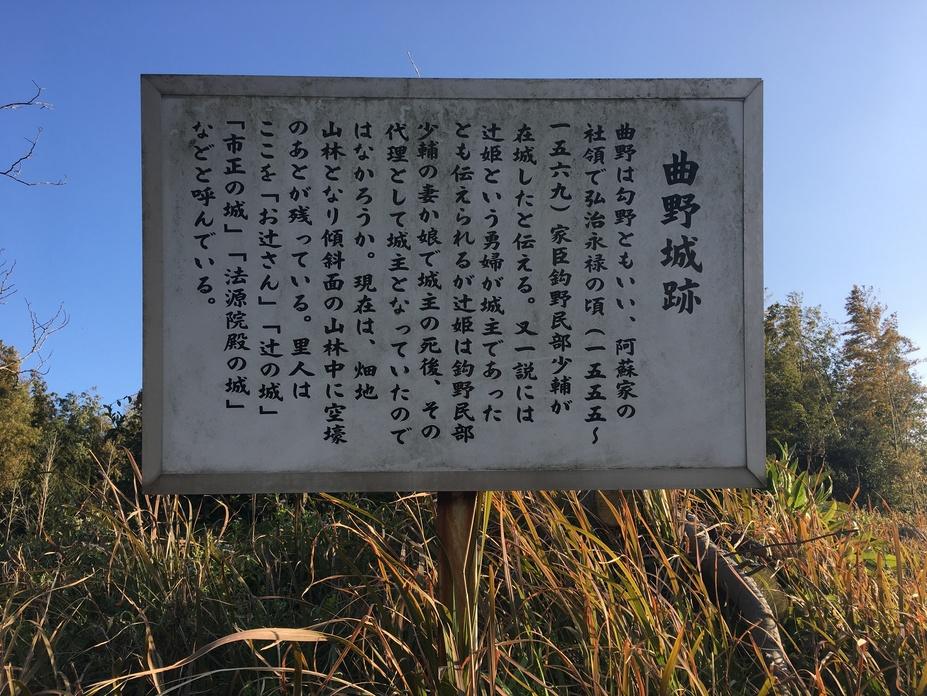 曲野城跡
曲野は勾野ともいい、阿蘇家の
社領で弘治永禄の頃(一五五五~
一五六九)家臣鈎野民部少輔が
在城したと伝える。又一説には
辻姫という勇婦が城主であった
とも伝えられるが辻姫は鈎野民部
少輔の妻か娘で城主の死後、その
代理として城主となっていたので
はなかろうか。現在は、畑地
山林となり傾斜面の山林中に空壕
のあとが残っている。里人は
ここを「お辻さん」「辻の城」
「市正の城」「法源院殿の城」
などと呼んでいる。